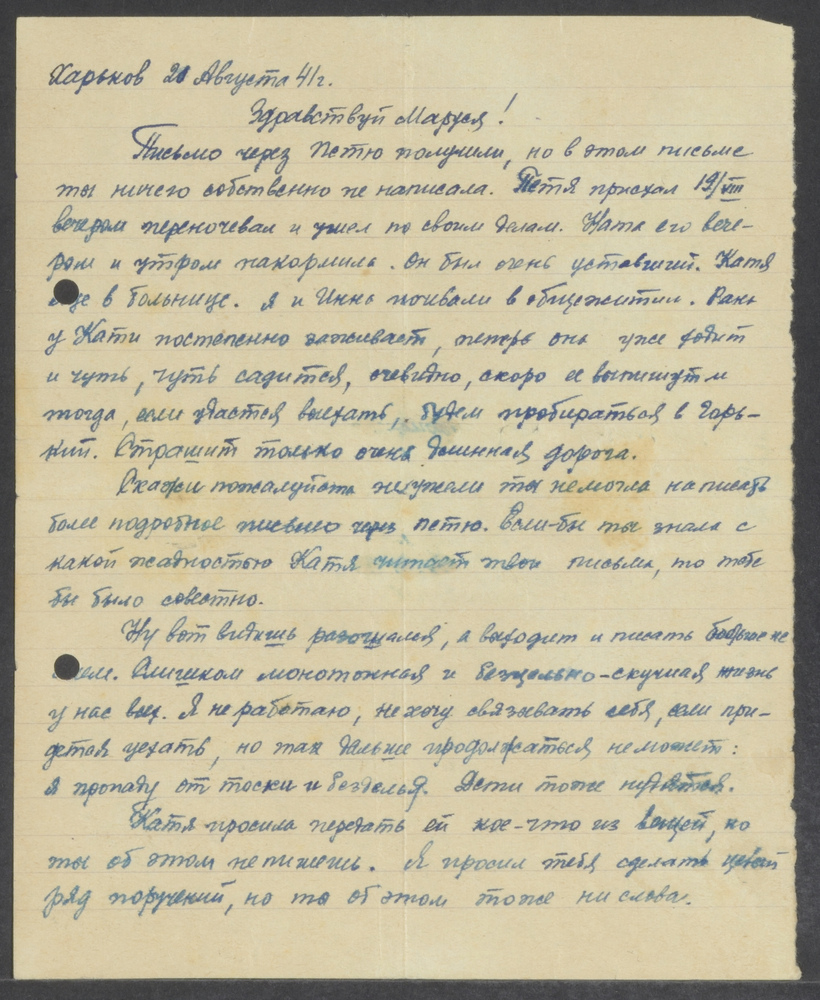 Харьков 20 Августа 41г.
Здравствуй Маруся!
Письмо через Петю получили, но в этом письме
ты ничего собственно не написала. Петя приехал 19/VIII
вечером переночевал и ушел по своим делам. Ната его вече-
ром и утром накормила. Он был очень уставший. Катя
еще в больнице. Я и Инна ночевали в общежитии. Рана
у Кати постепенно заживает, теперь она уже ходит
и чуть, чуть садится, очевидно, скоро ее выпишут и
тогда, если удастся выехать, будем пробираться в Горь-
кий. Страшит только очень длинная дорога.
Скажи пожалуйста неужели ты немогла написать
более подробное письмо через Петю. Если-бы ты знала с
какой жадностью Катя читает твои письма, то тебе
бы было совестно.
Ну вот видишь разошелся, а выходит и писать больше не
о чем. Слишком монотонная и безцельно-скучная жизнь
у нас всех. Я не работаю, нехочу связывать себя, если при-
дется уехать, но так дальше продолжаться неможет:
я пропаду от тоски и безделья. Дети тоже
Катя просила передать ей кое-что из вещей, но
ты об этом непишешь. Я просил тебя сделать целый
ряд поручений, но ты об этом тоже ни слова.